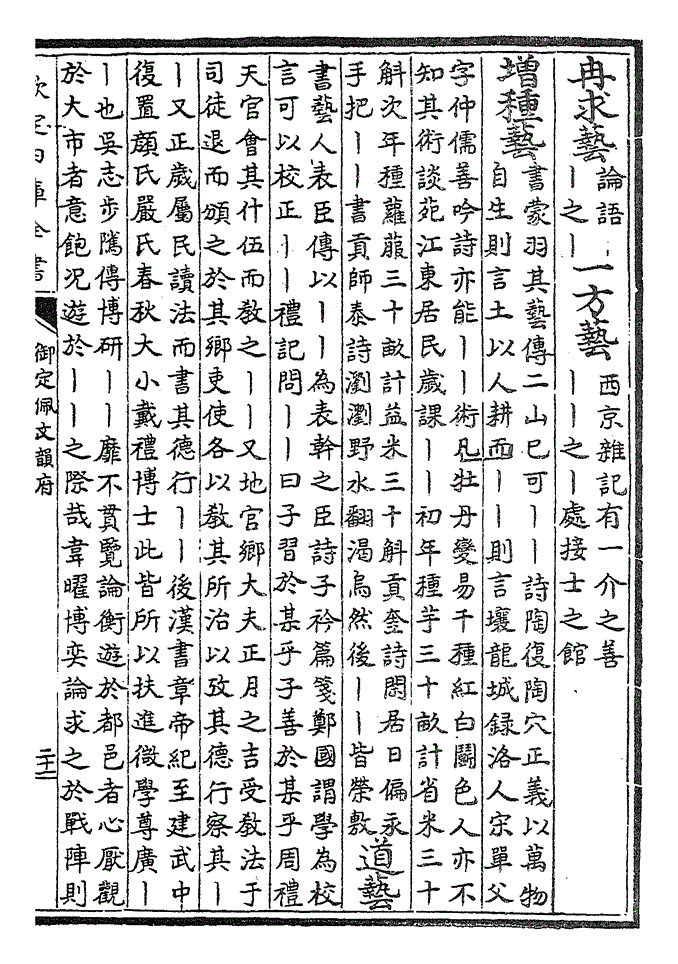 冉求藝
論語丨
丨之丨
一方藝
西京雜記有一介之善
丨丨之丨處接士之館
增種藝
書蒙羽其藝傳二山已可丨丨詩陶復陶穴正義以萬物
自生則言土以人耕而丨丨則言壤龍城録洛人宋單父
字仲儒善吟詩亦能丨丨術凡牡丹變易千種紅白鬭色人亦不
知其術談苑江東居民歲課丨丨初年種芋三十畝計省米三十
斛次年種蘿菔三十畝計益米三十斛貢奎詩閑居日偏永
手把丨丨書貢師泰詩瀏瀏野水翻渴烏然後丨丨皆榮敷
道藝
書藝人表臣傳以丨丨為表幹之臣詩子衿篇箋鄭國謂學為校
言可以校正丨丨禮記問丨丨曰子習於某乎子善於某乎周禮
天官會其什伍而教之丨丨又地官鄉大夫正月之吉受教法于
司徒退而頒之於其鄉吏使各以教其所治以攷其德行察其丨
丨又正歲屬民讀法而書其德行丨丨後漢書章帝紀至建武中
復置顔氏嚴氏春秋大小戴禮博士此皆所以扶進微學尊廣丨
丨也吳志步隲傳博研丨丨靡不貫覽論衡遊於都邑者心厭觀
於大市者意飽况遊於丨丨之際哉韋曜博奕論求之於戰陣則
欽定四庫全書
御定佩文韻府